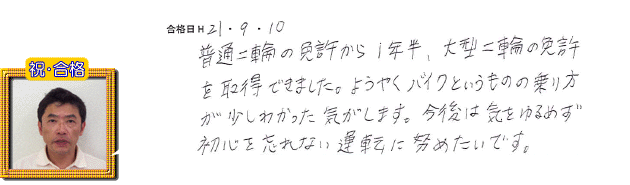 合格日 H 21・9・10
祝・合格
普通二輪の免許から1年半、大型二輪の免許
を取得できました。ようやくバイクというものの乗り方
が少しわかった気がします。今後は気をゆるめず
初心を忘れない運転に努めたいです。